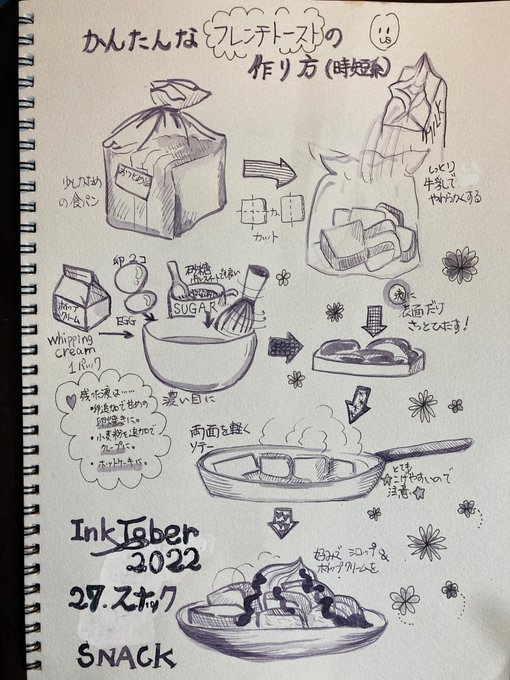 かんたんな フレンチトーストの
作り方(時短系)
少しかため
の食パン
おつとめ品
カット
MILK
しっとり
牛乳で
やわらかくする
卵2コ
EGG
砂糖
SUGAR
ホイップ
クリーム
whipping
cream
1パック
濃い目に
次に
表面だけ
さっとひたす!
残った液は……
・卵追加で甘めの
卵焼きに。
・小麦粉を追加で
クレープに。
・ホットケーキに。
両面を軽く
ソテー
とても
☆こげやすいので
注意☆
好みで シロップ&
ホイップクリームを
InkTober
2022
27.スナック
SNACK